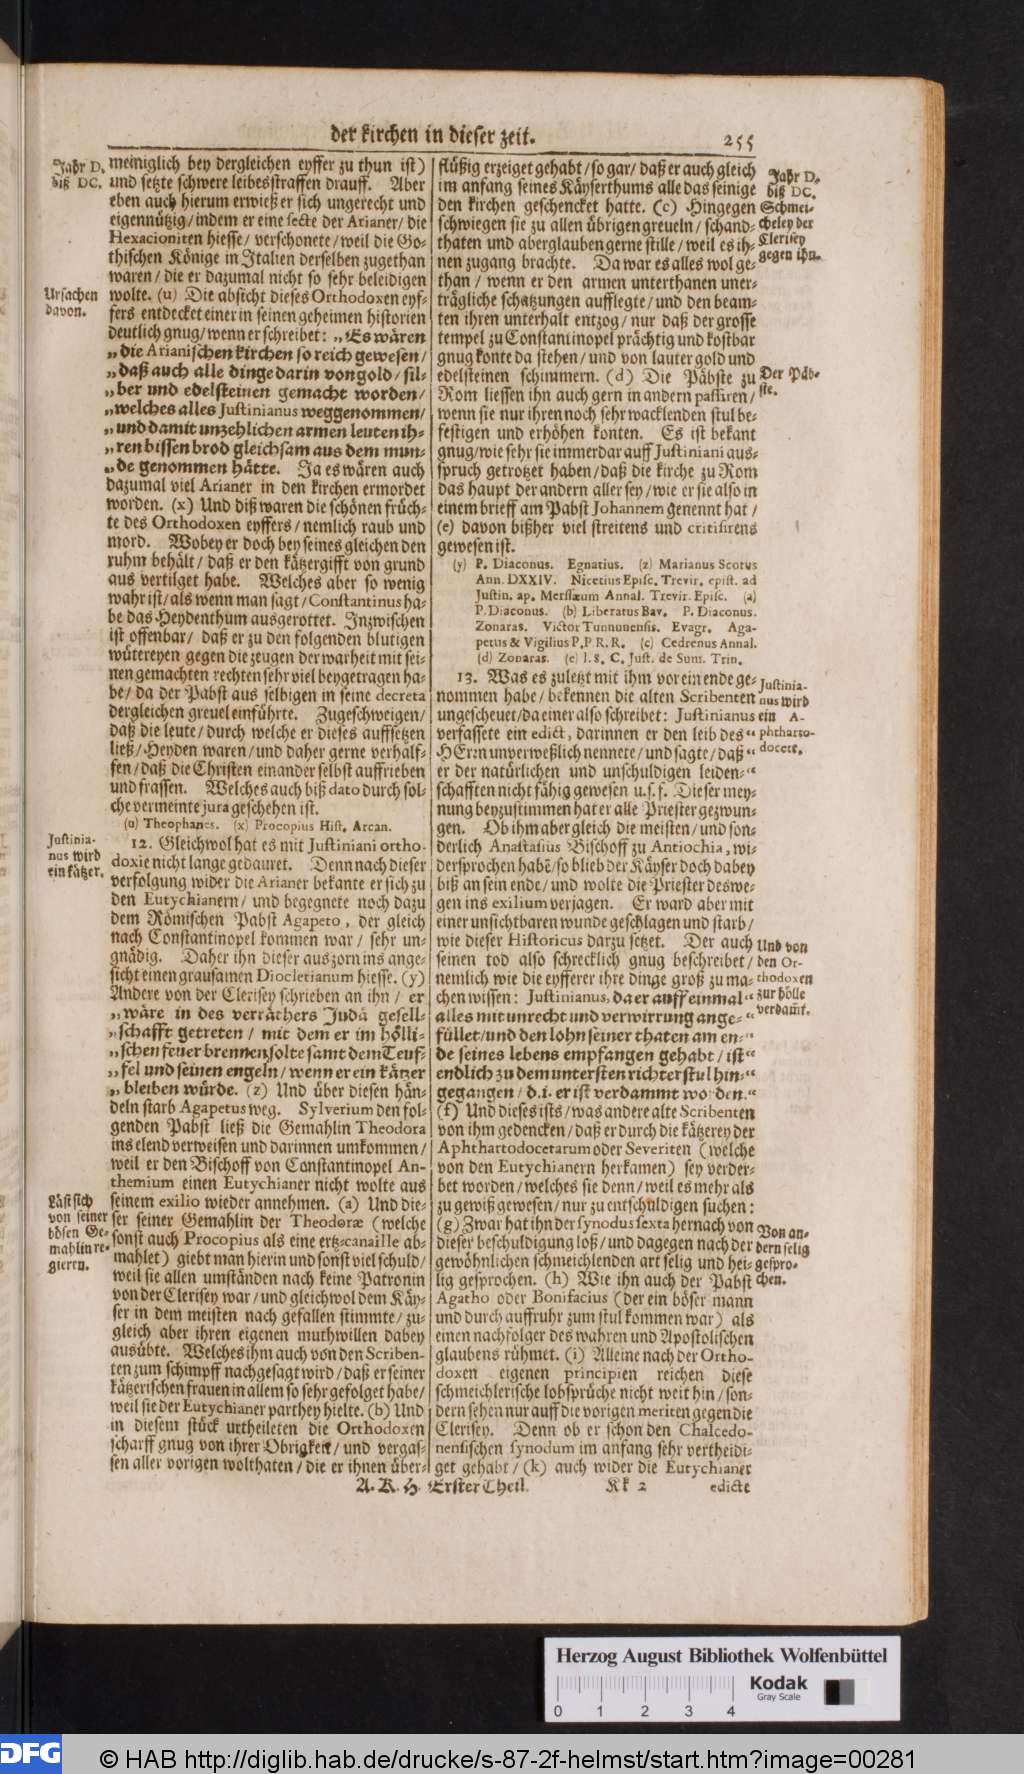 der kirchen in dieser zeit.
255
Jahr D.
biß DC.
meiniglich bey dergleichen eyffer zu thun ist)
und setzte schwere leibesstraffen drauff. Aber
eben auch hierum erwieß er sich ungerecht und
eigennützig/ indem er eine secte der Arianer/ die
Hexacioniten hiesse/ verschonete/ weil die Go-
thischen Könige in Italien derselben zugethan
waren/ die er dazumal nicht so sehr beleidigen
Ursachen
davon.
wolte. (u) Die absicht dieses Orthodoxen eyf-
fers entdecket einer in seinen geheimen historien
deutlich gnug/ wenn er schreibet: „Es wären
„die Arianischen kirchen so reich gewesen/
„daß auch alle dinge darin von gold/ sil-
„ber und edelsteinen gemacht worden/
„welches alles Justinianus weggenommen/
„und damit unzehlichen armen leuten ih-
„ren bissen brod gleichsam aus dem mun-
„de genommen hätte. Ja es wären auch
dazumal viel Arianer in den kirchen ermordet
worden. (x) Und diß waren die schönen früch-
te des Orthodoxen eyffers/ nemlich raub und
mord. Wobey er doch bey seines gleichen den
ruhm behält/ daß er den kätzergifft von grund
aus vertilget habe. Welches aber so wenig
wahr ist/ als wenn man sagt/ Constantinus ha-
be das Heydenthum ausgerottet. Inzwischen
ist offenbar/ daß er zu den folgenden blutigen
wütereyen gegen die zeugen der warheit mit sei-
nen gemachten rechten sehr viel beygetragen ha-
be/ da der Pabst aus selbigen in seine decreta
dergleichen greuel einführte. Zugeschweigen/
daß die leute/ durch welche er dieses auffsetzen
ließ/ Heyden waren/ und daher gerne verhalf-
fen/ daß die Christen einander selbst auffrieben
und frassen. Welches auch biß dato durch sol-
che vermeinte jura geschehen ist.
(u) Theophanes. (x) Procopius Hist. Arcan.
Justinia-
nus wird
ein kätzer.
12. Gleichwol hat es mit Justiniani ortho-
doxie nicht lange gedauret. Denn nach dieser
verfolgung wider die Arianer bekante er sich zu
den Eutychianern/ und begegnete noch dazu
dem Römischen Pabst Agapeto, der gleich
nach Constantinopel kommen war/ sehr un-
gnädig. Daher ihn dieser aus zorn ins ange-
sicht einen grausamen Diocletianum hiesse. (y)
Andere von der Clerisey schrieben an ihn/ er
„wäre in des verräthers Judä gesell-
„schafft getreten/ mit dem er im hölli-
„schen feuer brennen solte samt dem Teuf-
„fel und seinen engeln/ wenn er ein kätzer
„bleiben würde. (z) Und über diesen hän-
deln starb Agapetus weg. Sylverium den fol-
genden Pabst ließ die Gemahlin Theodora
ins elend verweisen und darinnen umkommen/
weil er den Bischoff von Constantinopel An-
themium einen Eutychianer nicht wolte aus
Läst sich
von seiner
bösen Ge-
mahlin re-
gieren.
seinem exilio wieder annehmen. (a) Und die-
ser seiner Gemahlin der Theodoræ (welche
sonst auch Procopius als eine ertz-canaille ab-
mahlet) giebt man hierin und sonst viel schuld/
weil sie allen umständen nach keine Patronin
von der Clerisey war/ und gleichwol dem Käy-
ser in dem meisten nach gefallen stimmte/ zu-
gleich aber ihren eigenen muthwillen dabey
ausübte. Welches ihm auch von den Scriben-
ten zum schimpff nachgesagt wird/ daß er seiner
kätzerischen frauen in allem so sehr gefolget habe/
weil sie der Eutychianer parthey hielte. (b) Und
in diesem stück urtheileten die Orthodoxen
scharff gnug von ihrer Obrigkeit/ und vergas-
sen aller vorigen wolthaten/ die er ihnen über-
flüßig erzeiget gehabt/ so gar/ daß er auch gleich
im anfang seines Käyserthums alle das seinige
den kirchen geschencket hatte. (c) Hingegen
schwiegen sie zu allen übrigen greueln/ schand-
thaten und aberglauben gerne stille/ weil es ih-
nen zugang brachte. Da war es alles wol ge-
than/ wenn er den armen unterthanen uner-
trägliche schatzungen aufflegte/ und den beam-
ten ihren unterhalt entzog/ nur daß der grosse
tempel zu Constantinopel prächtig und kostbar
gnug konte da stehen/ und von lauter gold und
edelsteinen schimmern. (d) Die Päbste zu
Rom liessen ihn auch gern in andern passiren/
wenn sie nur ihren noch sehr wacklenden stul be-
festigen und erhöhen konten. Es ist bekant
gnug/ wie sehr sie immerdar auff Justiniani aus-
spruch getrotzet haben/ daß die kirche zu Rom
das haupt der andern aller sey/ wie er sie also in
einem brieff am Pabst Johannem genennt hat/
(e) davon bißher viel streitens und critisirens
gewesen ist.
Jahr D.
biß DC.
Schmei-
cheley der
Clerisey
gegen ihn.
Der Päb-
ste.
(y) P. Diaconus. Egnatius. (z) Marianus Scotus
Ann. DXXIV. Nicetius Episc. Trevir. epist. ad
Justin. ap. Mersæum Annal. Trevir. Episc. (a)
P. Diaconus. (b) Liberatus Bav. P. Diaconus.
Zonaras. Victor Tunnunensis. Evagr. Aga-
petus & Vigilius P.P R.R. (c) Cedrenus Annal.
(d) Zonaras. (e) l. 8. C. Just. de Sum. Trin.
13. Was es zuletzt mit ihm vor ein ende ge-
nommen habe/ bekennen die alten Scribenten
ungescheuet/ da einer also schreibet: Justinianus
verfassete ein edict, darinnen er den leib des“
HErrn unverweßlich nennete/ und sagte/ daß“
er der natürlichen und unschuldigen leiden-“
schafften nicht fähig gewesen u.s.f. Dieser mey-
nung beyzustimmen hat er alle Priester gezwun-
gen. Ob ihm aber gleich die meisten/ und son-
derlich Anastasius Bischoff zu Antiochia, wi-
dersprochen habē/ so blieb der Käyser doch dabey
biß an sein ende/ und wolte die Priester deswe-
gen ins exilium verjagen. Er ward aber mit
einer unsichtbaren wunde geschlagen und starb/
wie dieser Historicus darzu setzet. Der auch
seinen tod also schrecklich gnug beschreibet/
nemlich wie die eyfferer ihre dinge groß zu ma-
chen wissen: Justinianus, da er auff einmal“
alles mit unrecht und verwirrung ange-“
füllet/ und den lohn seiner thaten am en-“
de seines lebens empfangen gehabt/ ist“
endlich zu dem untersten richterstul hin-“
gegangen/ d.i. er ist verdammt worden.“
(f) Und dieses ists/ was andere alte Scribenten
von ihm gedencken/ daß er durch die kätzerey der
Aphthartodocetarum oder Severiten (welche
von den Eutychianern herkamen) sey verder-
bet worden/ welches sie denn/ weil es mehr als
zu gewiß gewesen/ nur zu entschuldigen suchen:
(g) Zwar hat ihn der synodus sexta hernach von
dieser beschuldigung loß/ und dagegen nach der
gewöhnlichen schmeichlenden art selig und hei-
lig gesprochen. (h) Wie ihn auch der Pabst
Agatho oder Bonifacius (der ein böser mann
und durch auffruhr zum stul kommen war) als
einen nachfolger des wahren und Apostolischen
glaubens rühmet. (i) Alleine nach der Ortho-
doxen eigenen principien reichen diese
schmeichlerische lobsprüche nicht weit hin/ son-
dern sehen nur auff die vorigen meriten gegen die
Clerisey. Denn ob er schon den Chalcedo-
nensischen synodum im anfang sehr vertheidi-
get gehabt/ (k) auch wider die Eutychianer
Justinia-
nus wird
ein A-
phtharto-
docete.
Und von
den Or-
thodoxen
zur hölle
verdam̄t.
Von an-
dern selig
gespro-
chen.
A. K. H. Erster Theil.
Kk 2
edicte
Herzog August Bibliothek Wolfenbüttel
Kodak
Gray Scale
0 1 2 3 4
DFG
© HAB http://diglib.hab.de/drucke/s-87-2f-helmst/start.htm?image=00281